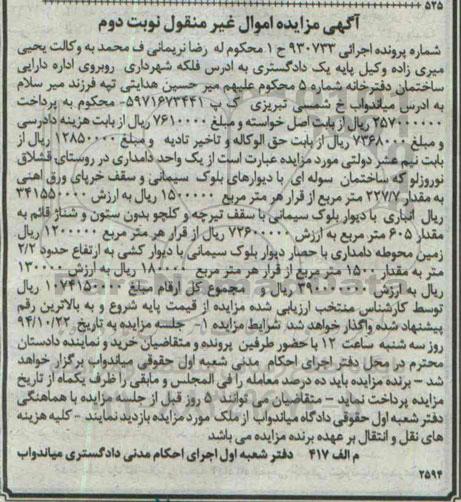 ۵۲۵
آگهی مزایده اموال غیر منقول نوبت دوم
شماره پرونده اجرائی ۹۳۰۷۳۳ ح ۱ محکوم له رضا نریمانی ف محمد به وکالت یحیی
میری زاده وکیل پایه یک دادگستری به ادرس فلکه شهرداری روبروی اداره دارایی
ساختمان دفترخانه شماره ۵ محکوم علیهم میر حسین هدایتی تپه فرزند میر سلام
به ادرس میاندواب خ شمسی تبریزی ک پ ۵۹۷۱۶۷۳۴۴۱- محکوم به پرداخت
ریال از بابت اصل خواسته و مبلغ ۷۶۱۰۰۰۰ ریال از بابت هزینه دادرسی
و مبلغ ۷۳۶۸۰۰۰ ریال از بابت حق الوکاله و تاخیر تادیه و مبلغ ۱۲۸۵۰۰۰۰ ریال از
بابت نیم عشر دولتی مورد مزایده عبارت است از یک واحد دامداری در روستای قشلاق
نوروزلو که ساختمان سوله ای با دیوارهای بلوک سیمانی و سقف خرپای ورق اهنی
به مقدار ۲۲۷/۷ متر مربع از قرار هر متر مربع ۱۵۰۰۰۰۰ ریال به ارزش ۳۴۱۵۵۰۰۰۰
ریال انباری با دیوار بلوک سیمانی با سقف تیرچه و کلچو بدون ستون و شناژ قائم به
مقدار ۶۰۵ متر مربع به ارزش ۷۲۶۰۰۰۰۰۰ ریال از قرار هر متر مربع ۱۲۰۰۰۰۰ ریال
زمین محوطه دامداری با حصار دیوار بلوک سیمانی با دیوار کشی به ارتفاع حدود ۲/۲
متر به مقدار ۱۵۰۰ متر مربع از قرار هر متر مربع ریال به ارزش
ریال به ارزش ریال و مجموع کل ارقام مبلغ ریال
توسط کارشناس منتخب ارزیابی شده مزایده از قیمت پایه شروع و به بالاترین رقم
پیشنهاد شده واگذار خواهد شد شرایط مزایده ۱- جلسه مزایده به تاریخ ۹۴/۱۰/۲۲
روز سه شنبه ساعت ۱۲ با حضور طرفین پرونده و متقاضیان خرید و نماینده دادستان
محترم در محل دفتر اجرای احکام مدنی شعبه اول حقوقی میاندواب برگزار خواهد
شد - برنده مزایده باید ده درصد معامله را فی المجلس و مابقی را ظرف یکماه از تاریخ
مزایده پرداخت نماید - متقاضیان می توانند ۵ روز قبل از جلسه مزایده با هماهنگی
دفتر شعبه اول حقوقی دادگاه میاندواب از ملک مورد مزایده بازدید نمایند - کلیه هزینه
های نقل و انتقال بر عهده برنده مزایده می باشد
م الف ۴۱۷ دفتر شعبه اول اجرای احکام مدنی دادگستری میاندواب
۲۵۹۴